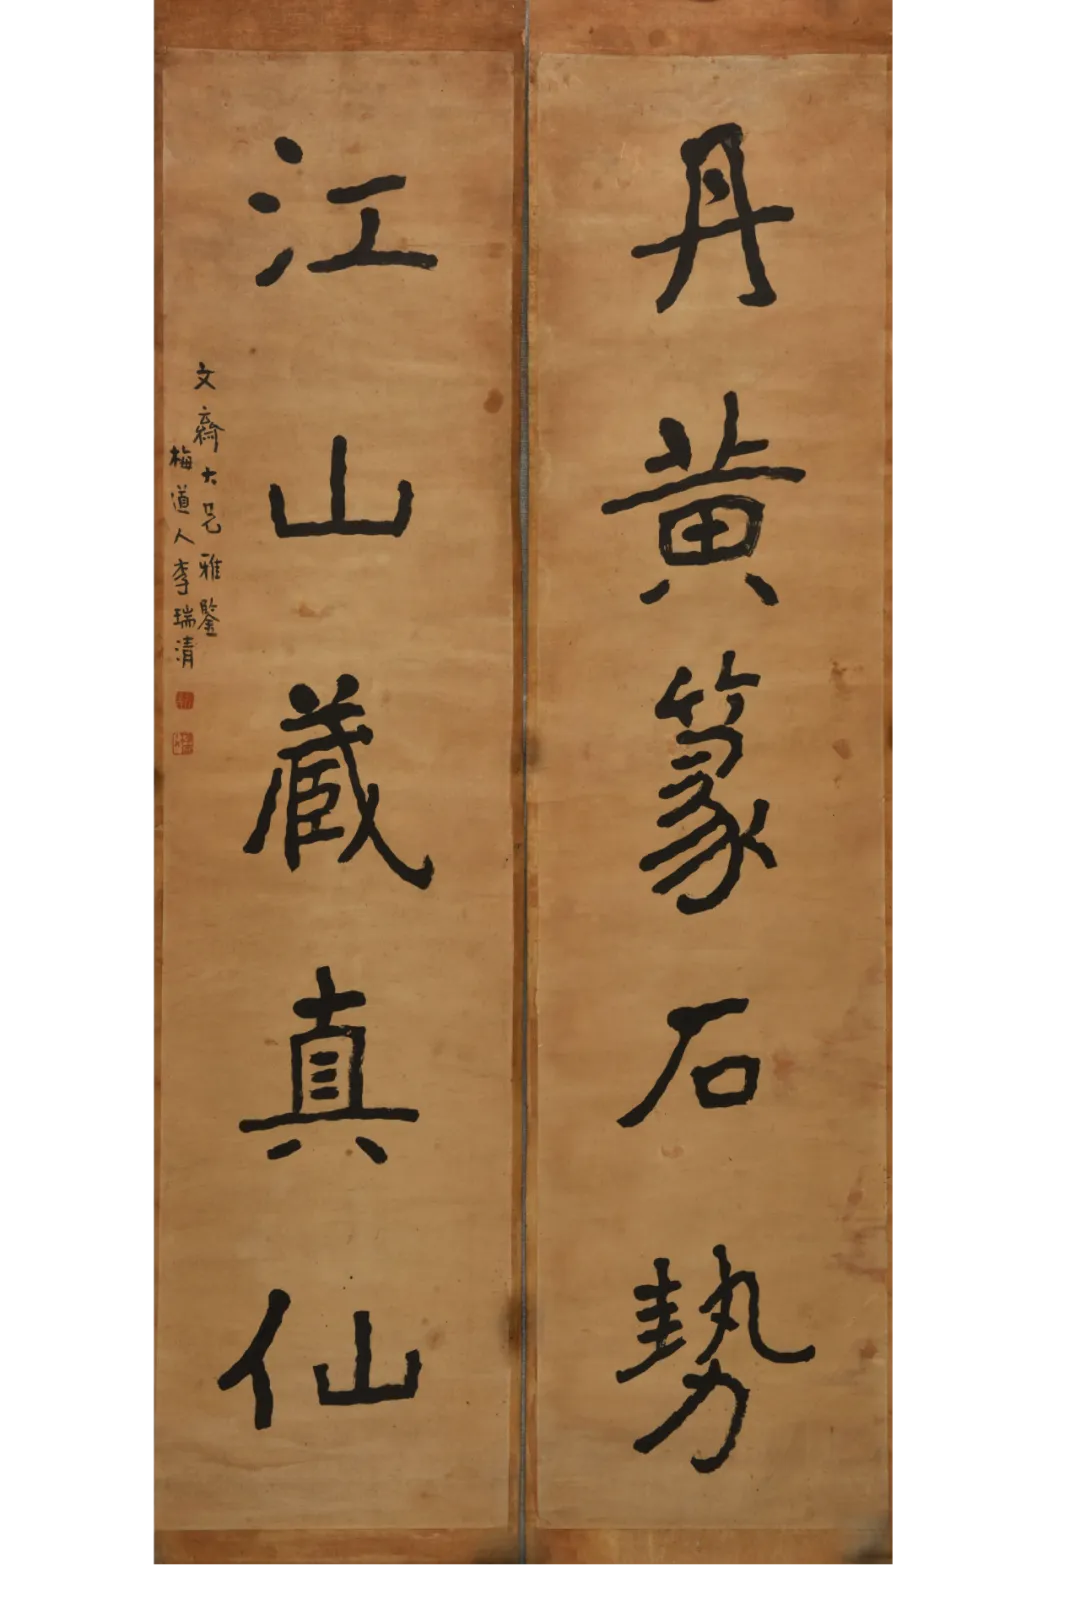 丹黄篆石勢
江山藏真仙
文齋大兄雅鑒
梅道人李瑞清